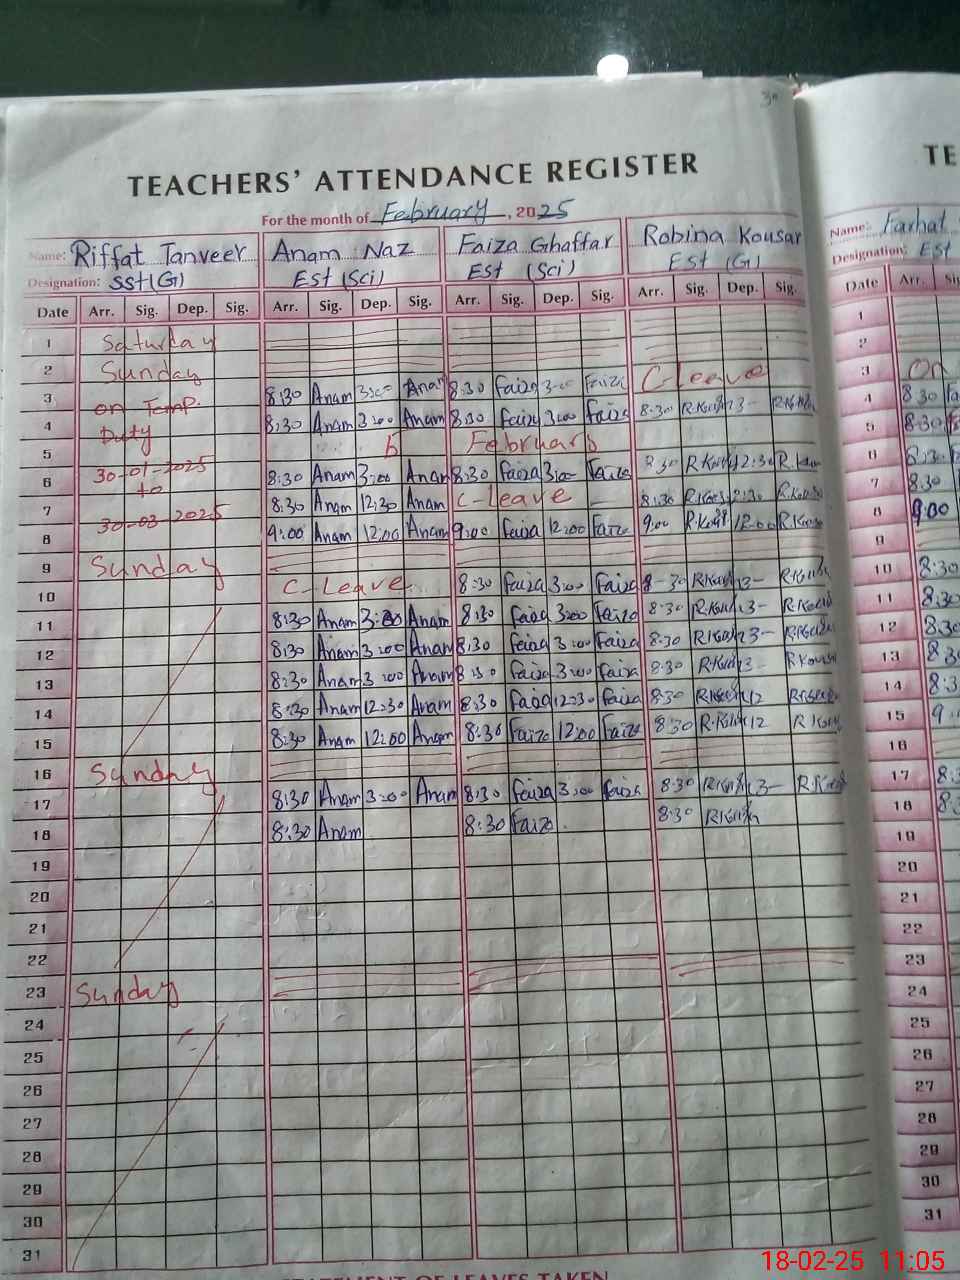 30
TEACHERS' ATTENDANCE REGISTER
TE
For the month of February, 2025
Name: Riffat Tanveer Anam Naz Faiza Ghaffar Robina Kousar Name: Farhat
Designation: SST(G) Est (Sci) Est (Sci) Est (G) Designation: Est
Date Arr. Sig. Dep. Sig. Arr. Sig. Dep. Sig. Arr. Sig. Dep. Sig. Arr. Sig. Dep. Sig. Date Arr.
1 Saturday 1
2 Sunday 2
3 on Temp. 8:30 Anam 3:00 Anam 8:30 Faiza 3:00 Faiza C-leave 3 On
4 Duty 8:30 Anam 3:00 Anam 8:30 Faiza 3:00 Faiza 8:30 3- 4 8:30
5 5 February 5 8:30
6 30-01-2025 8:30 Anam 3:00 Anam 8:30 Faiza 3:00 Faiza 8:30 2:30 6 8:30
to
7 30-03-2025 8:30 Anam 12:30 Anam C-leave 8:30 7 8:30
8 9:00 Anam 12:00 Anam 9:00 Faiza 12:00 Faiza 9:00 12:00 8 9:00
9 Sunday 9
10 C-Leave 8:30 Faiza 3:00 Faiza 8-30 3- 10 8:30
11 8:30 Anam 3:00 Anam 8:30 Faiza 3:00 Faiza 8:30 3- 11 8:30
12 8:30 Anam 3:00 Anam 8:30 Faiza 3:00 Faiza 8:30 3- 12 8:30
13 8:30 Anam 3:00 Anam 8:30 Faiza 3:00 Faiza 8:30 3- R Kousar 13 8:3
14 8:30 Anam 12:30 Anam 8:30 Faiza 12:30 Faiza 8:30 12 14 8:3
15 8:30 Anam 12:00 Anam 8:30 Faiza 12:00 Faiza 8:30 12 15 9
16 Sunday 16
17 8:30 Anam 3:00 Anam 8:30 Faiza 3:00 Faiza 8:30 3- 17 8:
18 8:30 Anam 8:30 Faiza 8:30 18 8:
19 19
20 20
21 21
22 22
23 Sunday 23
24 24
25 25
26 26
27 27
28 28
29 29
30 30
31 31
STATEMENT OF LEAVES TAKEN
18-02-25 11:05